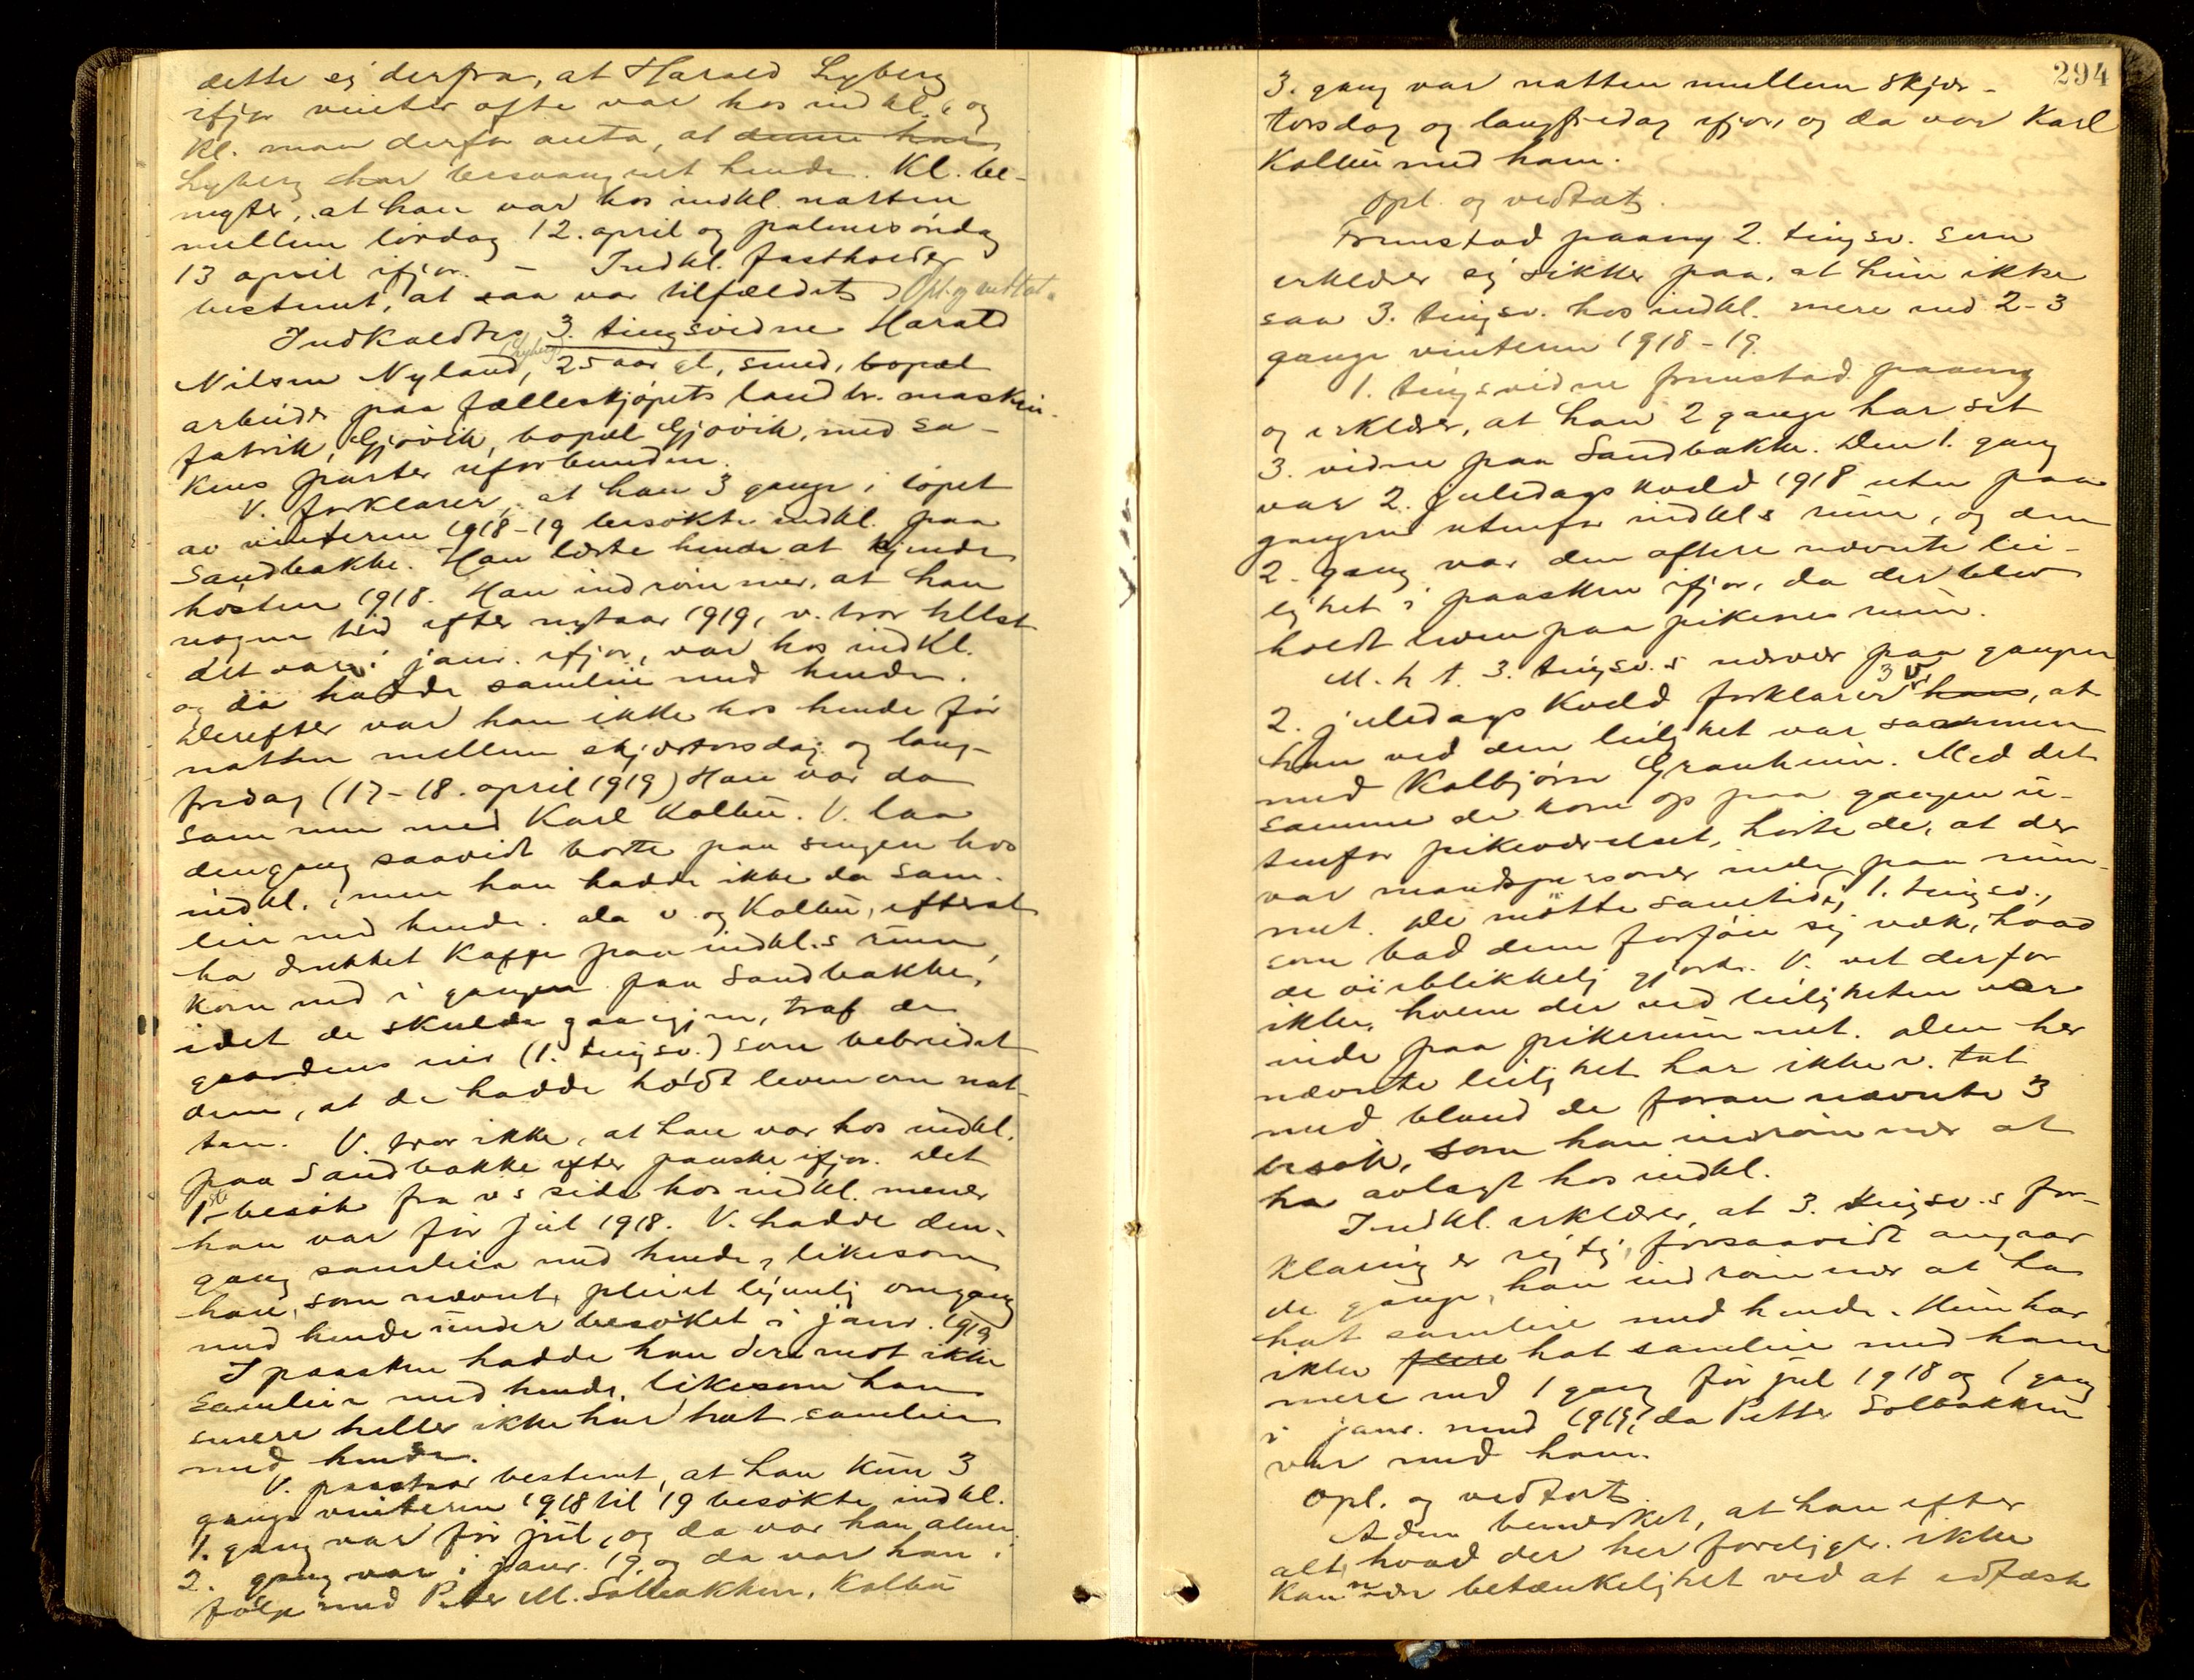 dette ej derfra, at Harald Lyberg
ifjor vinter ofte var hos indkl., og
Kl. maa derfor anta, at denne har
Lyberg har besvangret hende. Kl. be-
negter, at han var hos indkl. natten
mellem lördag 12. april og palmesöndag
13 april ifjor. – Indkl. fastholder
bestemt, at saa var tilfældet. Opl. og vedtat.
Indkaldtes 3. tingsvidne Harald
(Lyberg)
Nilsen Nyland, 25 aar gl, smed, bopæl
arbeider paa fælleskjöpets landbr. maskin-
fabrik, Gjövik, bopæl Gjövik, med sa-
kens parter uforbunden.
V. forklarer, at han 3 gange i löpet
av vinteren 1918-19 besökte indkl. paa
Sandbakke. Han lærte hende at kjende
hösten 1918. Han indrömmer, at han
nogen tid efter nytaar 1919, v. tror helst
det var i janr. ifjor, var hos indkl.
og da hadde samleie med hende.
Derefter var han ikke hos hende för
natten mellem skjærtorsdag og lang-
fredag (17-18. april 1919) Han var da
sammen med Karl Kolbu. V. laa
dengang saavidt borte paa sengen hos
indkl., men han hadde ikke da sam-
leie med hende. Da v. og Kolbu, efterat
ha drukket kaffe paa indkl.s rum,
kom ned i gangen paa Sandbakke,
idet de skulde gaa igjen, traf de
gaardens eier (1. tingsv.) som bebreidet
dem, at de hadde holdt leven om nat-
ten. V. tror ikke, at han var hos indkl.
paa Sandbakke efter paaske ifjor. Det
1ste besök fra v s side hos indkl. mener
han var för jul 1918. V. hadde den-
gang samleie med hende, likesom
han, som nævnt, pleiet legemlig omgang
med hende under besöket i janr. 1919
I paasken hadde han derimot ikke
samleie med hende, likesom han
senere heller ikke har hat samleie
med hende.
V. paastaar bestemt, at han kun 3
gange vinteren 1918 til 19 besökte indkl.
1. gang var för jul, og da var han alene.
2. gang var i janr. 19 og da var han i
fölge med Peter M. Solbakken, Kolbu
294
3. gang var natten mellem skjær-
torsdag og langfredag ifjor, og da var Karl
Kolbu med ham.
Opl. og vedtat.
Fremstod paany 2. tingsv. som
erklærer sig sikker paa, at hun ikke
saa 3. tingsv. hos indkl. mere end 2-3
gange vinteren 1918-19.
1. tingsvidne fremstod paany
og erklærer, at han 2 gange har set
3. vidne paa Sandbakke. Den 1. gang
var 2. juledags kveld 1918 ute paa
gangen utenfor indkls rum, og den
2. gang var den oftere nævnte lei-
lighet i paasken ifjor, da der blev
holdt leven paa pikenes rum.
M. h. t. 3. tingsv.s nærvær paa gangen
3 v.
2. juledags kveld forklarer han, at
han ved den leilighet var sammen
med Kolbjörn Granheim. Med det
samme de kom op paa gangen u-
tenfor pikeværelset, hörte de, at der
var mandspersoner inde paa rum-
met. De mötte samtidig 1. tingsv.,
som bad dem forföie sig væk, hvad
de öieblikkelig gjorde. V. vet derfor
ikke, hvem der ved leiligheten var
inde paa pikerummet. Den her
nævnte leilighet har ikke v. tat
med bland de foran nævnte 3
besök, som han indrömmer at
ha avlagt hos indkl.
Indkl. erklærer, at 3. tingsv.s for-
klaring er rigtig, forsaavidt angaar
de gange, han indrömmer at ha
hat samleie med hende. Hun har
ikke flere hat samleie med ham
mere end 1 gang för jul 1918 og 1 gang
i janr. mnd 1919, da Petter Solbakken
var med ham.
Opl. og vedtat.
Adm. bemerket, at han efter
alt, hvad der her foreligger ikke
kan nære betænkelighet ved at edfæste